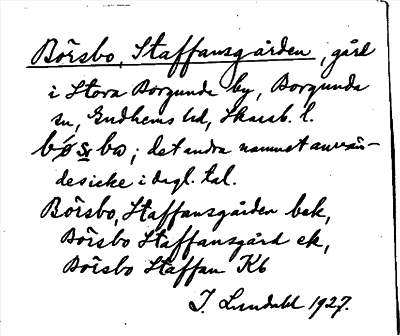 Börsbo, Staffansgården, gård
i Stora Borgunda by, Borgunda
sn, Gudhems hd, Skarab. l.
bø̀s̱bo; det andra namnet använ-
des icke i dagl. tal.
Börsbo, Staffansgården bek,
Börsbo Staffansgård ek,
Börsbo Staffan Kb
I. Lundahl 1927.